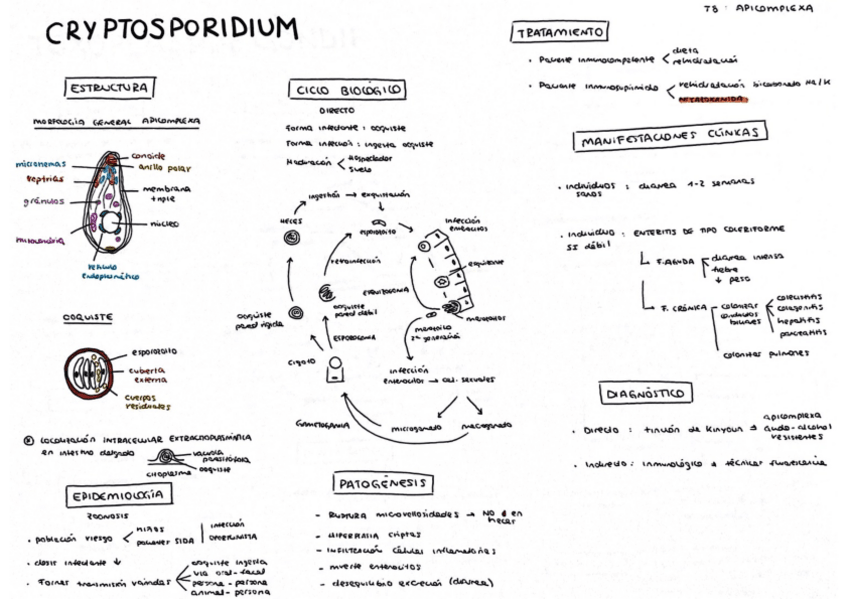 T8: APICOMPLEXA
CRYPTOSPORIDIUM
ESTRUCTURA
MORFOLOGÍA GENERAL APICOMPLEXA
conoide
anillo polar
micronemas
roptrias
membrana
triple
gránulos
núcleo
mitocondria
retículo
endoplasmático
OOQUISTE
esporozoito
cubierta
externa
cuerpos
residuales
LOCALIZACIÓN INTRACELULAR EXTRACITOPLASMÁTICA
en intestino delgado
vacuola
parasitófora
ooquiste
citoplasma
EPIDEMIOLOGÍA
ZOONOSIS
· población riesgo
niños
paciente SIDA
infección
oportunista
· dosis infectante ↓
· Formas transmisión variadas
ooquiste ingesta
vía oral-fecal
persona - persona
animal - persona
CICLO BIOLÓGICO
DIRECTO
Forma infectante : ooquiste
Forma infección : ingesta ooquiste
Maduración
hospedador
suelo
ingestión → exquistación
HECES
esporozoito
infección
enterocitos
retroinfección
esquizonte
ESQUIZOGONIA
ooquiste
pared débil
ooquiste
pared rígida
merozoitos
merozoito
2ª generación
ESPOROGONIA
cigoto
infección
enterocitos → cél. sexuales
GAMETOGONIA
microgameto
macrogameto
PATOGÉNESIS
- RUPTURA microvellosidades →
- HIPERPLASIA criptas
- INFILTRACIÓN células inflamatorias
- muerte enterocitos
- desequilibrio excreción (diarrea)
TRATAMIENTO
· Paciente inmunocompetente
dieta
rehidratación
· Paciente inmunosuprimido
rehidratación bicarbonato Na/K
NITAZOXANIDA
MANIFESTACIONES CLÍNICAS
· individuos : diarrea 1-2 semanas
sanos
· individuo : ENTERITIS DE TIPO COLERIFORME
SI débil
F. AGUDA
diarrea intensa
fiebre
↓ peso
F. CRÓNICA
colonizar
conductos
biliares
colecistitis
colangitis
hepatitis
pancreatitis
colonizar pulmones
DIAGNÓSTICO
· Directo : tinción de Kinyoun →
apicomplexa
ácido-alcohol
resistentes
· Indirecto : inmunológico + técnicas fluorescencia